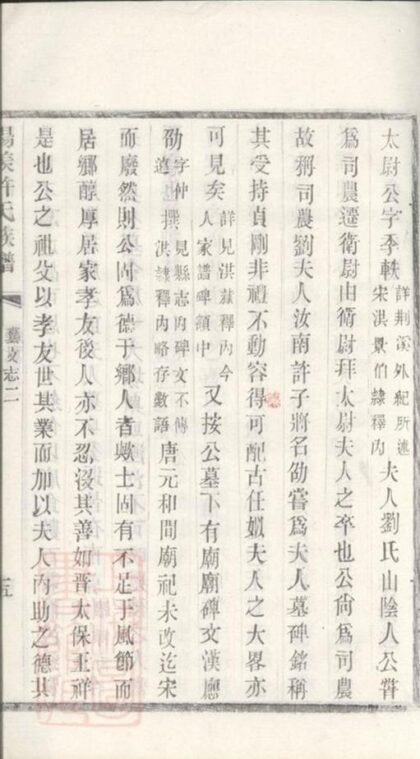 太尉公字季軼詳荆溪外紀所述宋淇景伯隸釋內夫人劉氏山陰人公甞
爲司農遷衛尉由衛尉拜太尉夫人之卒也公尙爲司農
故稱司農劉夫人汝南許子將名劭嘗爲夫人墓碑銘稱
其受持貞剛非禮不動容得可配古任姒夫人之大畧亦
可見矣詳見洪隸釋內今人家譜碑額中又按公墓下有廟廟碑文漢應
劭字仲遠也撰見縣志內碑文不傳淇隸釋內略存數語唐元和間廟祀未改迄宋
而廢然則公固爲德于鄉人者歟士固有不足于風節而
居鄉醇厚居家孝友後人亦不忍沒其善如晋太保王祥
是也公之祖父以孝友世其業而加以夫人內助之德其
陽羨許氏族譜
藝文志二
五
德